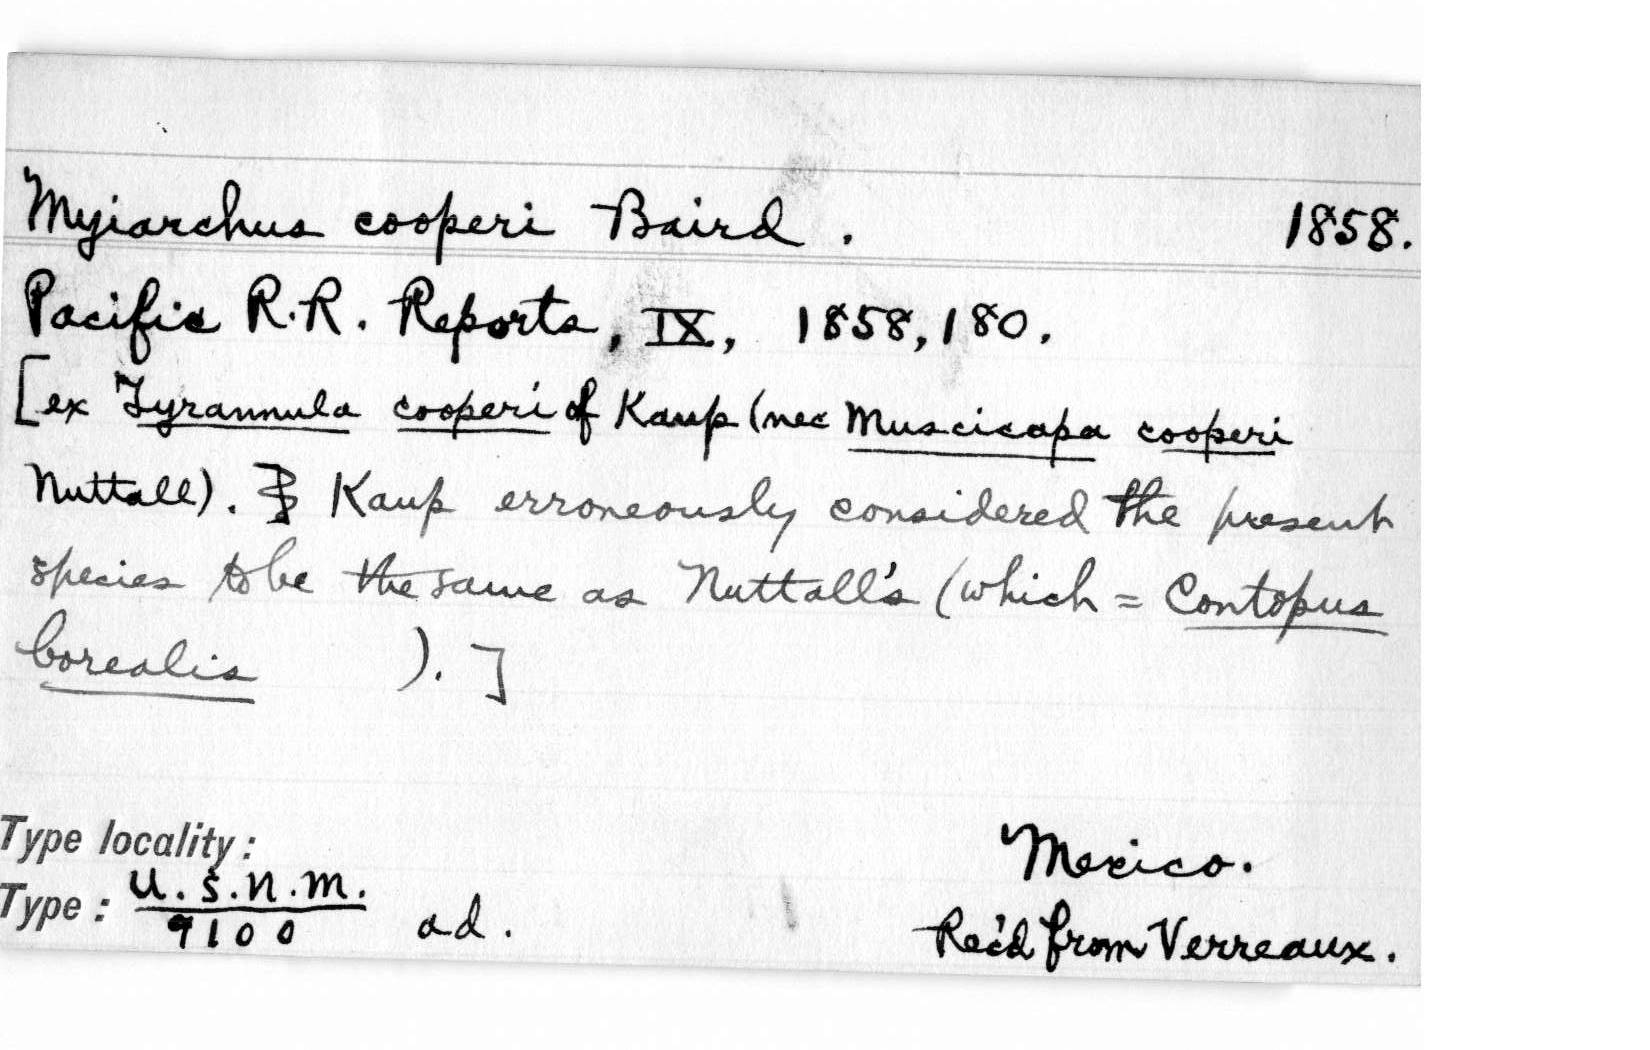 Myiarchus cooperi Baird. 1858.
Pacific R.R. Reports, IX, 1858, 180.
[ex Tyrannula cooperi of Kaup (nec Muscicapa cooperi
Nuttall). Kaup erroneously considered the present
species to be the same as Nuttall's (which = Contopus
borealis ).]
Type locality: Mexico.
Type: U.S.N.M.
9100 ad. Rec'd from Verreaux.